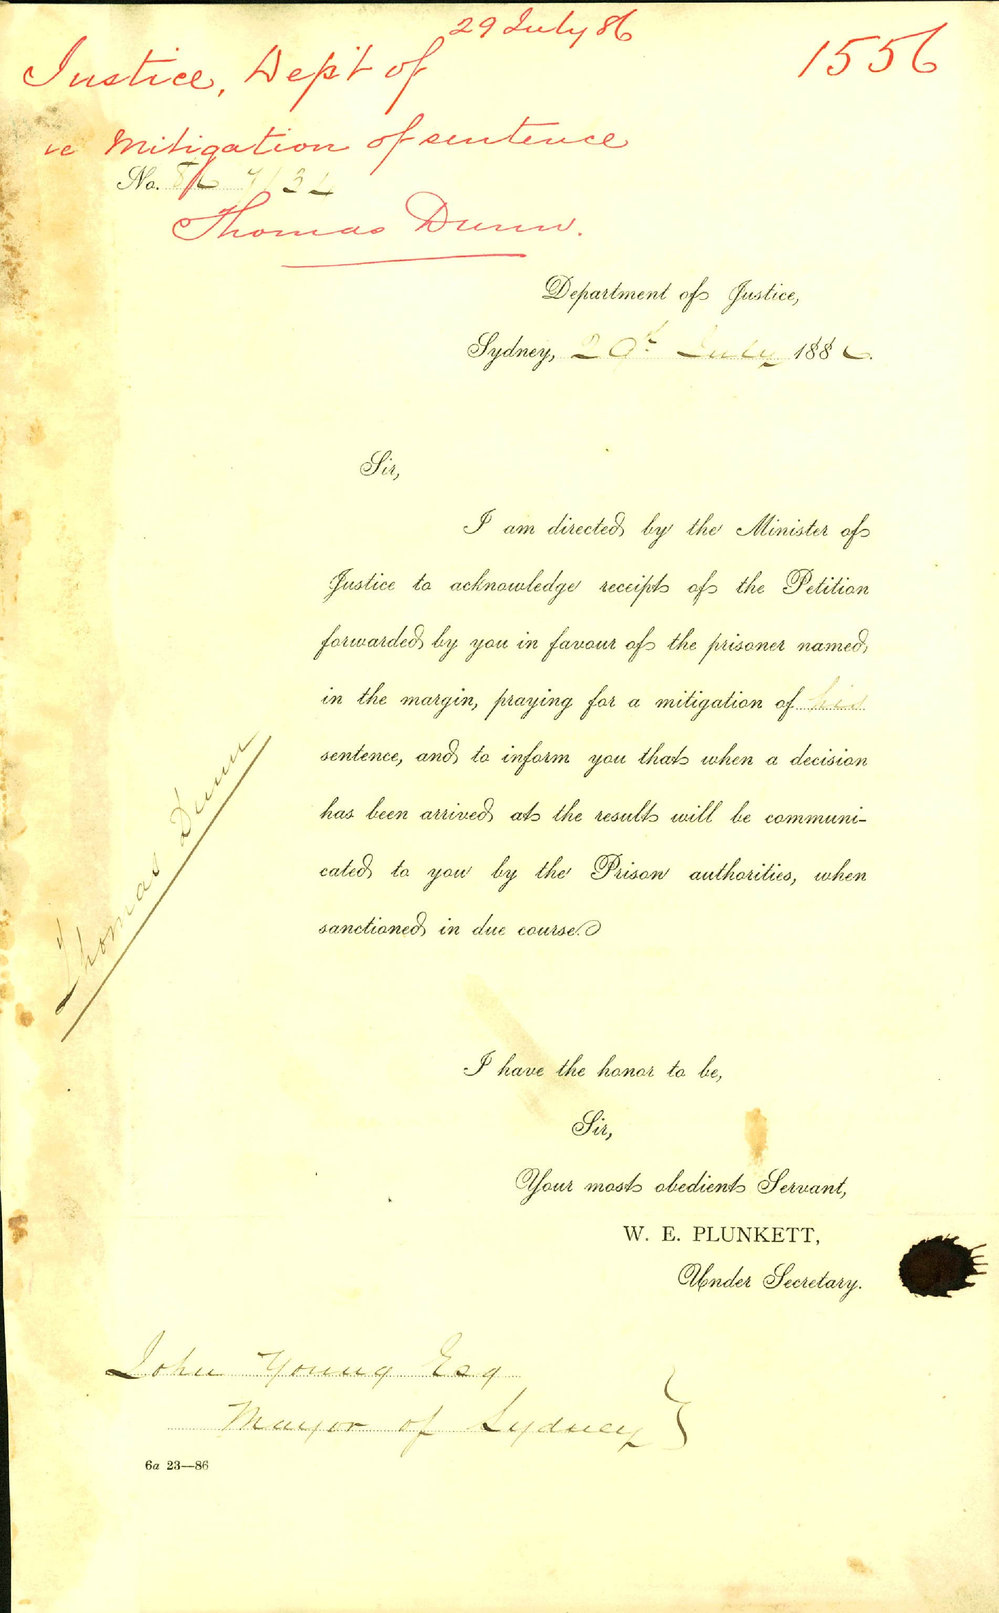 29 July 86
1556
Justice, Dep't of
re Mitigation of sentence
No. 86
Thomas Dunn.
Department of Justice,
Sydney, 29th July 1886.
Sir,
I am directed by the Minister of
Justice to acknowledge receipt of the Petition
forwarded by you in favour of the prisoner named
in the margin, praying for a mitigation of his
sentence, and to inform you that when a decision
has been arrived at the result will be communi-
cated to you by the Prison authorities, when
sanctioned in due course.
Thomas Dunn
I have the honor to be,
Sir,
Your most obedient Servant,
W. E. PLUNKETT,
Under Secretary.
John Young Esq
Mayor of Sydney }
6a 23—86